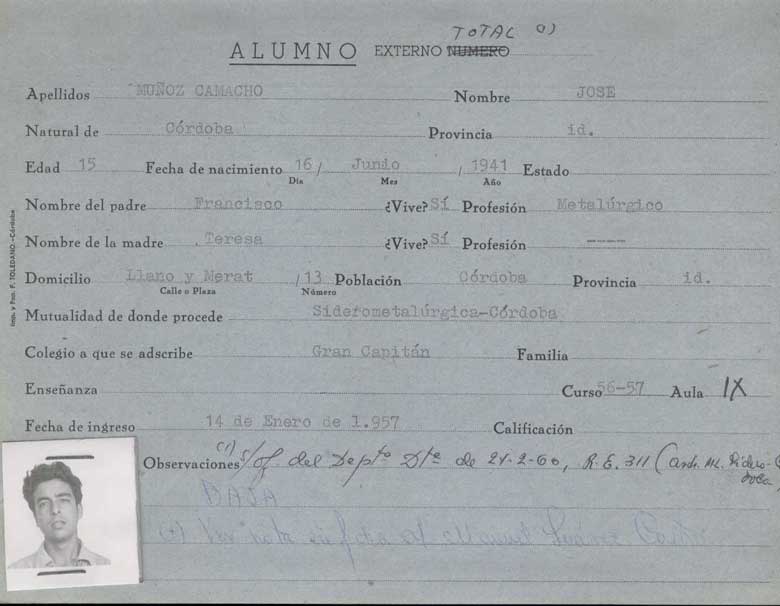 TOTAL 1)
ALUMNO EXTERNO NUMERO
Apellidos MUÑOZ CAMACHO Nombre JOSE
Natural de Córdoba Provincia id.
Edad 15 Fecha de nacimiento 16 / Junio / 1941 Estado
Día Mes Año
Nombre del padre Francisco ¿Vive? Sí Profesión Metalúrgico
Nombre de la madre Teresa ¿Vive? Sí Profesión ----
Domicilio Llano y Merat / 13 Población Córdoba Provincia id.
Calle o Plaza Número
Mutualidad de donde procede Siderometalúrgica-Córdoba
Colegio a que se adscribe Gran Capitán Familia
Enseñanza Curso 56-57 Aula IX
Fecha de ingreso 14 de Enero de 1.957 Calificación
Observaciones (1) s/of. del Depto Dte de 24-2-60, R.E. 311
BAJA
(+) Ver nota en ficha of Manuel Suárez
Imp. y Pap. F. TOLEDANO.-Córdoba